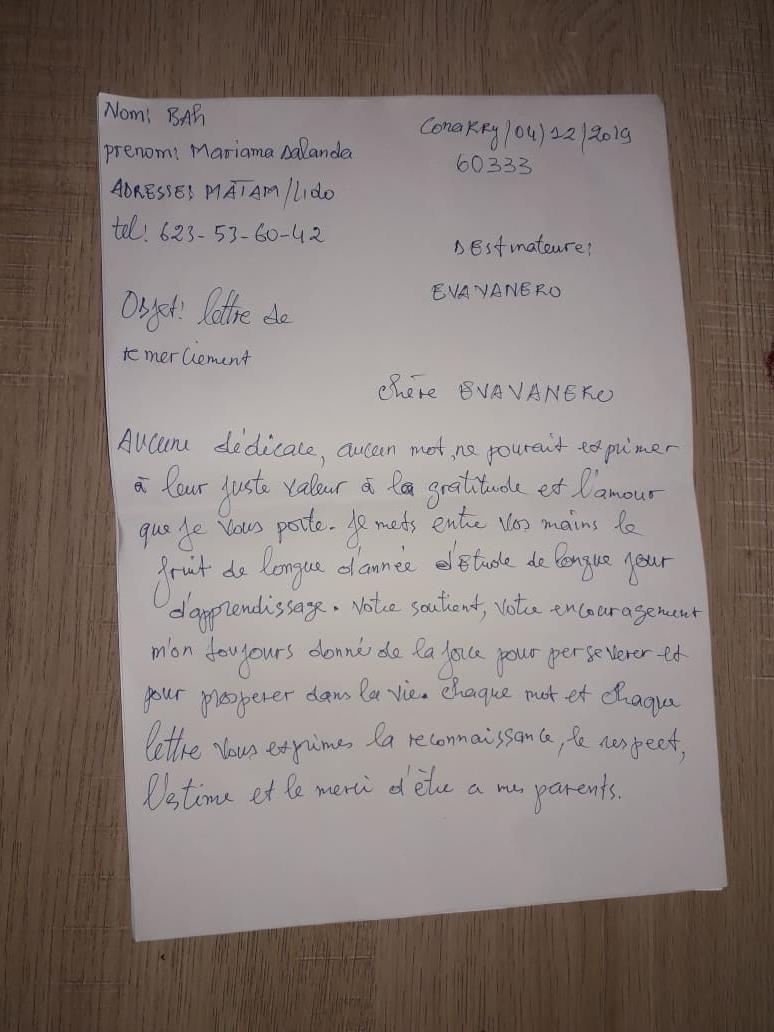 Nom: BAh
prenom: Mariama Dalanda
ADRESSE: MATAM/Lido
tel: 623-53-60-42
Conakry/04/12/2019
60333
DEstinateure:
EVAVANERO
Objet: lettre de
remerciement
chère EVAVANERO
Aucune dédicace, aucun mot, ne pourait exprimer
à leur juste valeur à la gratitude et l'amour
que je vous porte. Je mets entre vos mains le
fruit de longue d'année d'étude de longue jour
d'apprendissage. Votre soutient, votre encouragement
m'on toujours donné de la force pour perseverer et
pour prosperer dans la vie. chaque mot et chaque
lettre vous exprimes la reconnaissance, le respect,
l'estime et le merci d'être a mes parents.